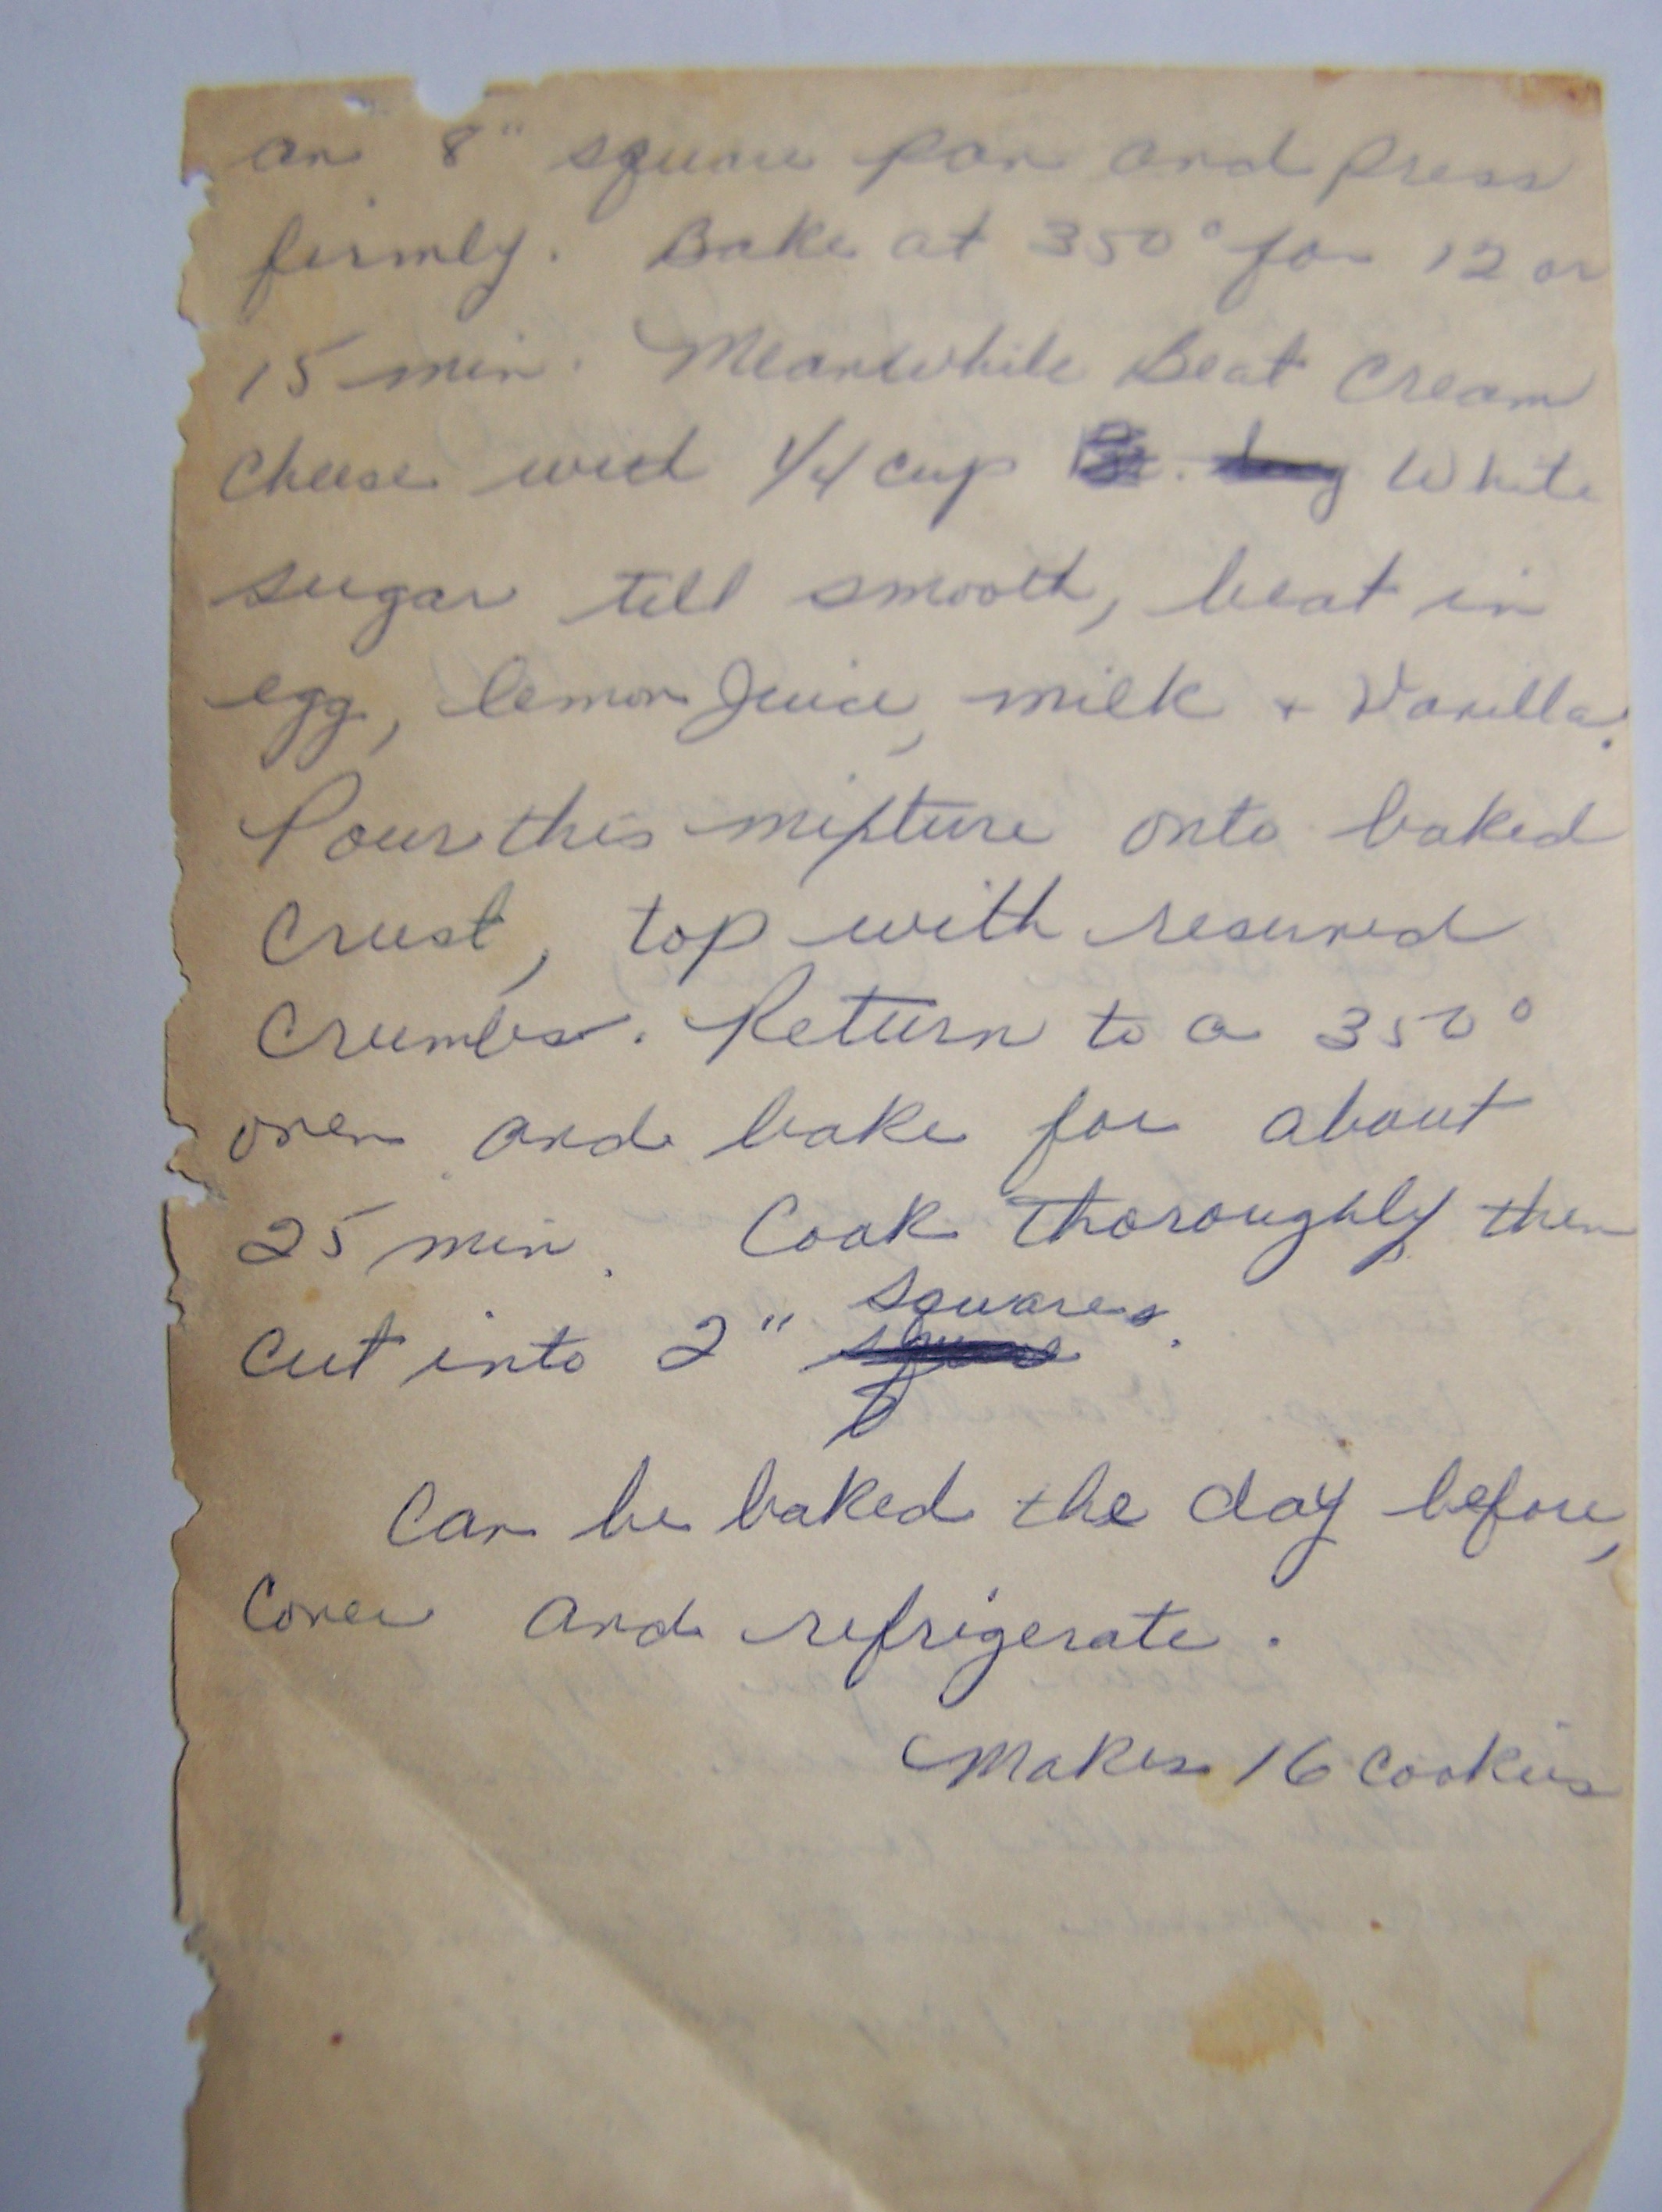 an 8" square pan and press
firmly. Bake at 350° for 12 or
15 min. Meanwhile Beat Cream
Cheese with 1/4 cup White
sugar till smooth, beat in
egg, lemon Juice, milk + Vanilla.
Pour this mixture onto baked
Crust, top with reserved
Crumbs. Return to a 350°
oven and bake for about
25 min. Cook thoroughly then
cut into 2" squares.
Can be baked the day before,
Cover and refrigerate.
Makes 16 Cookies